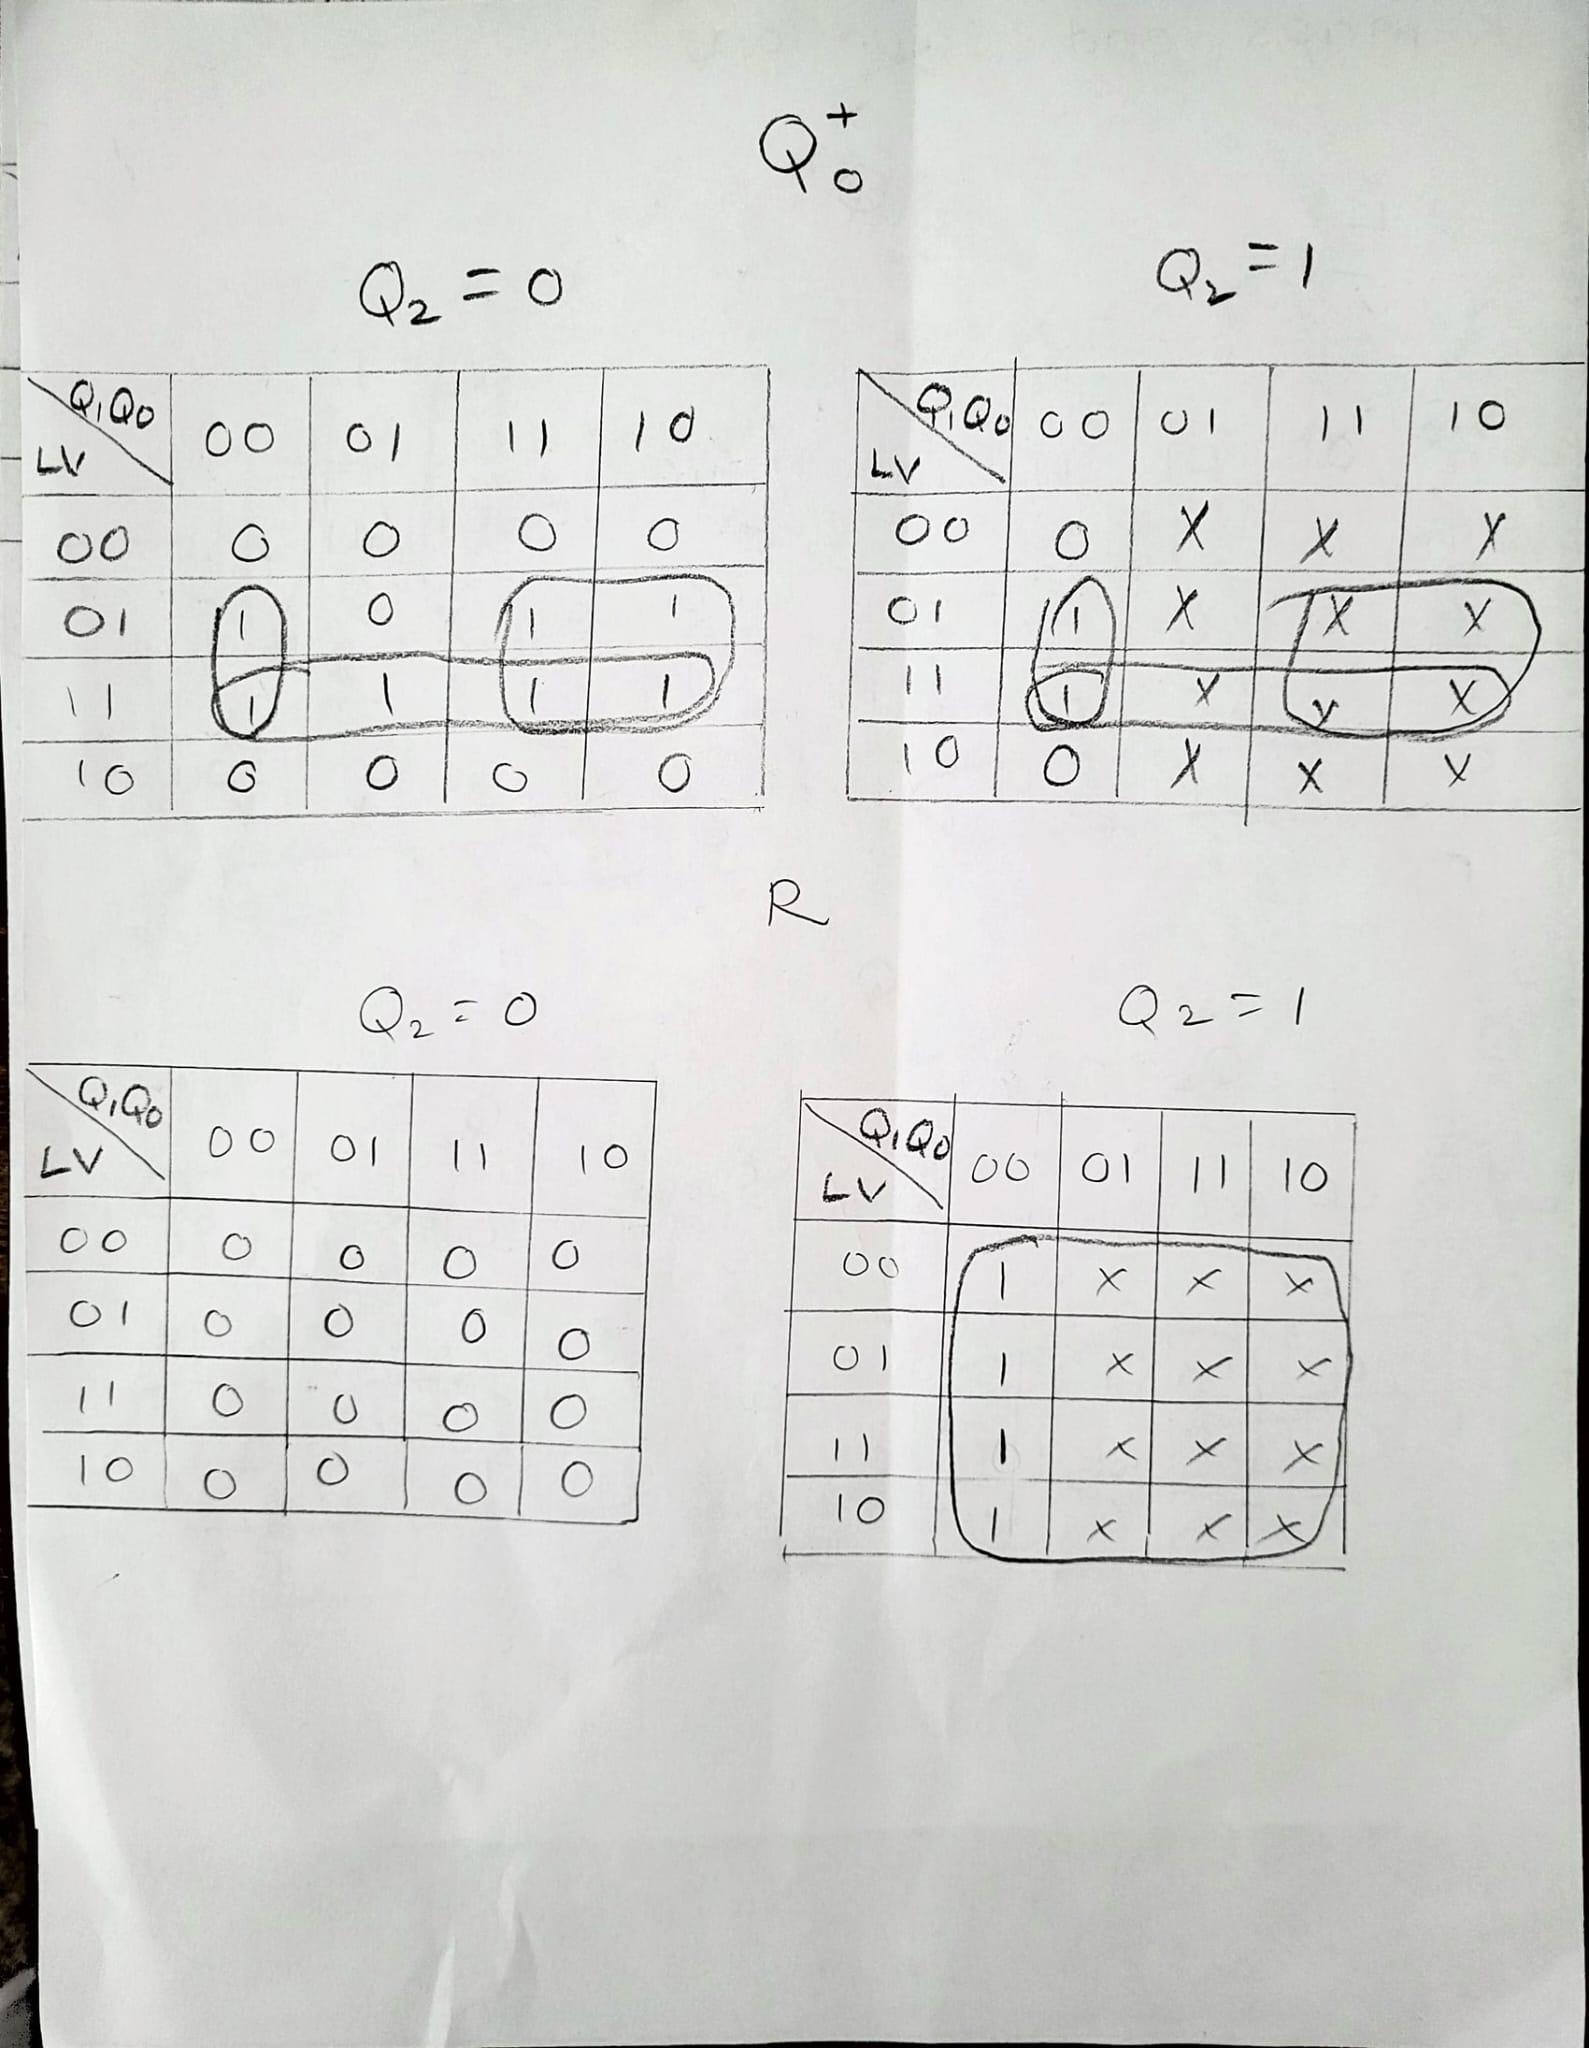 Q₀⁺
Q₂ = 0
Q₂ = 1
Q₁Q₀ 00 01 11 10
LV
00 0 0 0 0
01 1 0 1 1
11 1 1 1 1
10 0 0 0 0
Q₁Q₀ 00 01 11 10
LV
00 0 X X X
01 1 X X X
11 1 X X X
10 0 X X X
R
Q₂ = 0
Q₂ = 1
Q₁Q₀ 00 01 11 10
LV
00 0 0 0 0
01 0 0 0 0
11 0 0 0 0
10 0 0 0 0
Q₁Q₀ 00 01 11 10
LV
00 1 X X X
01 1 X X X
11 1 X X X
10 1 X X X